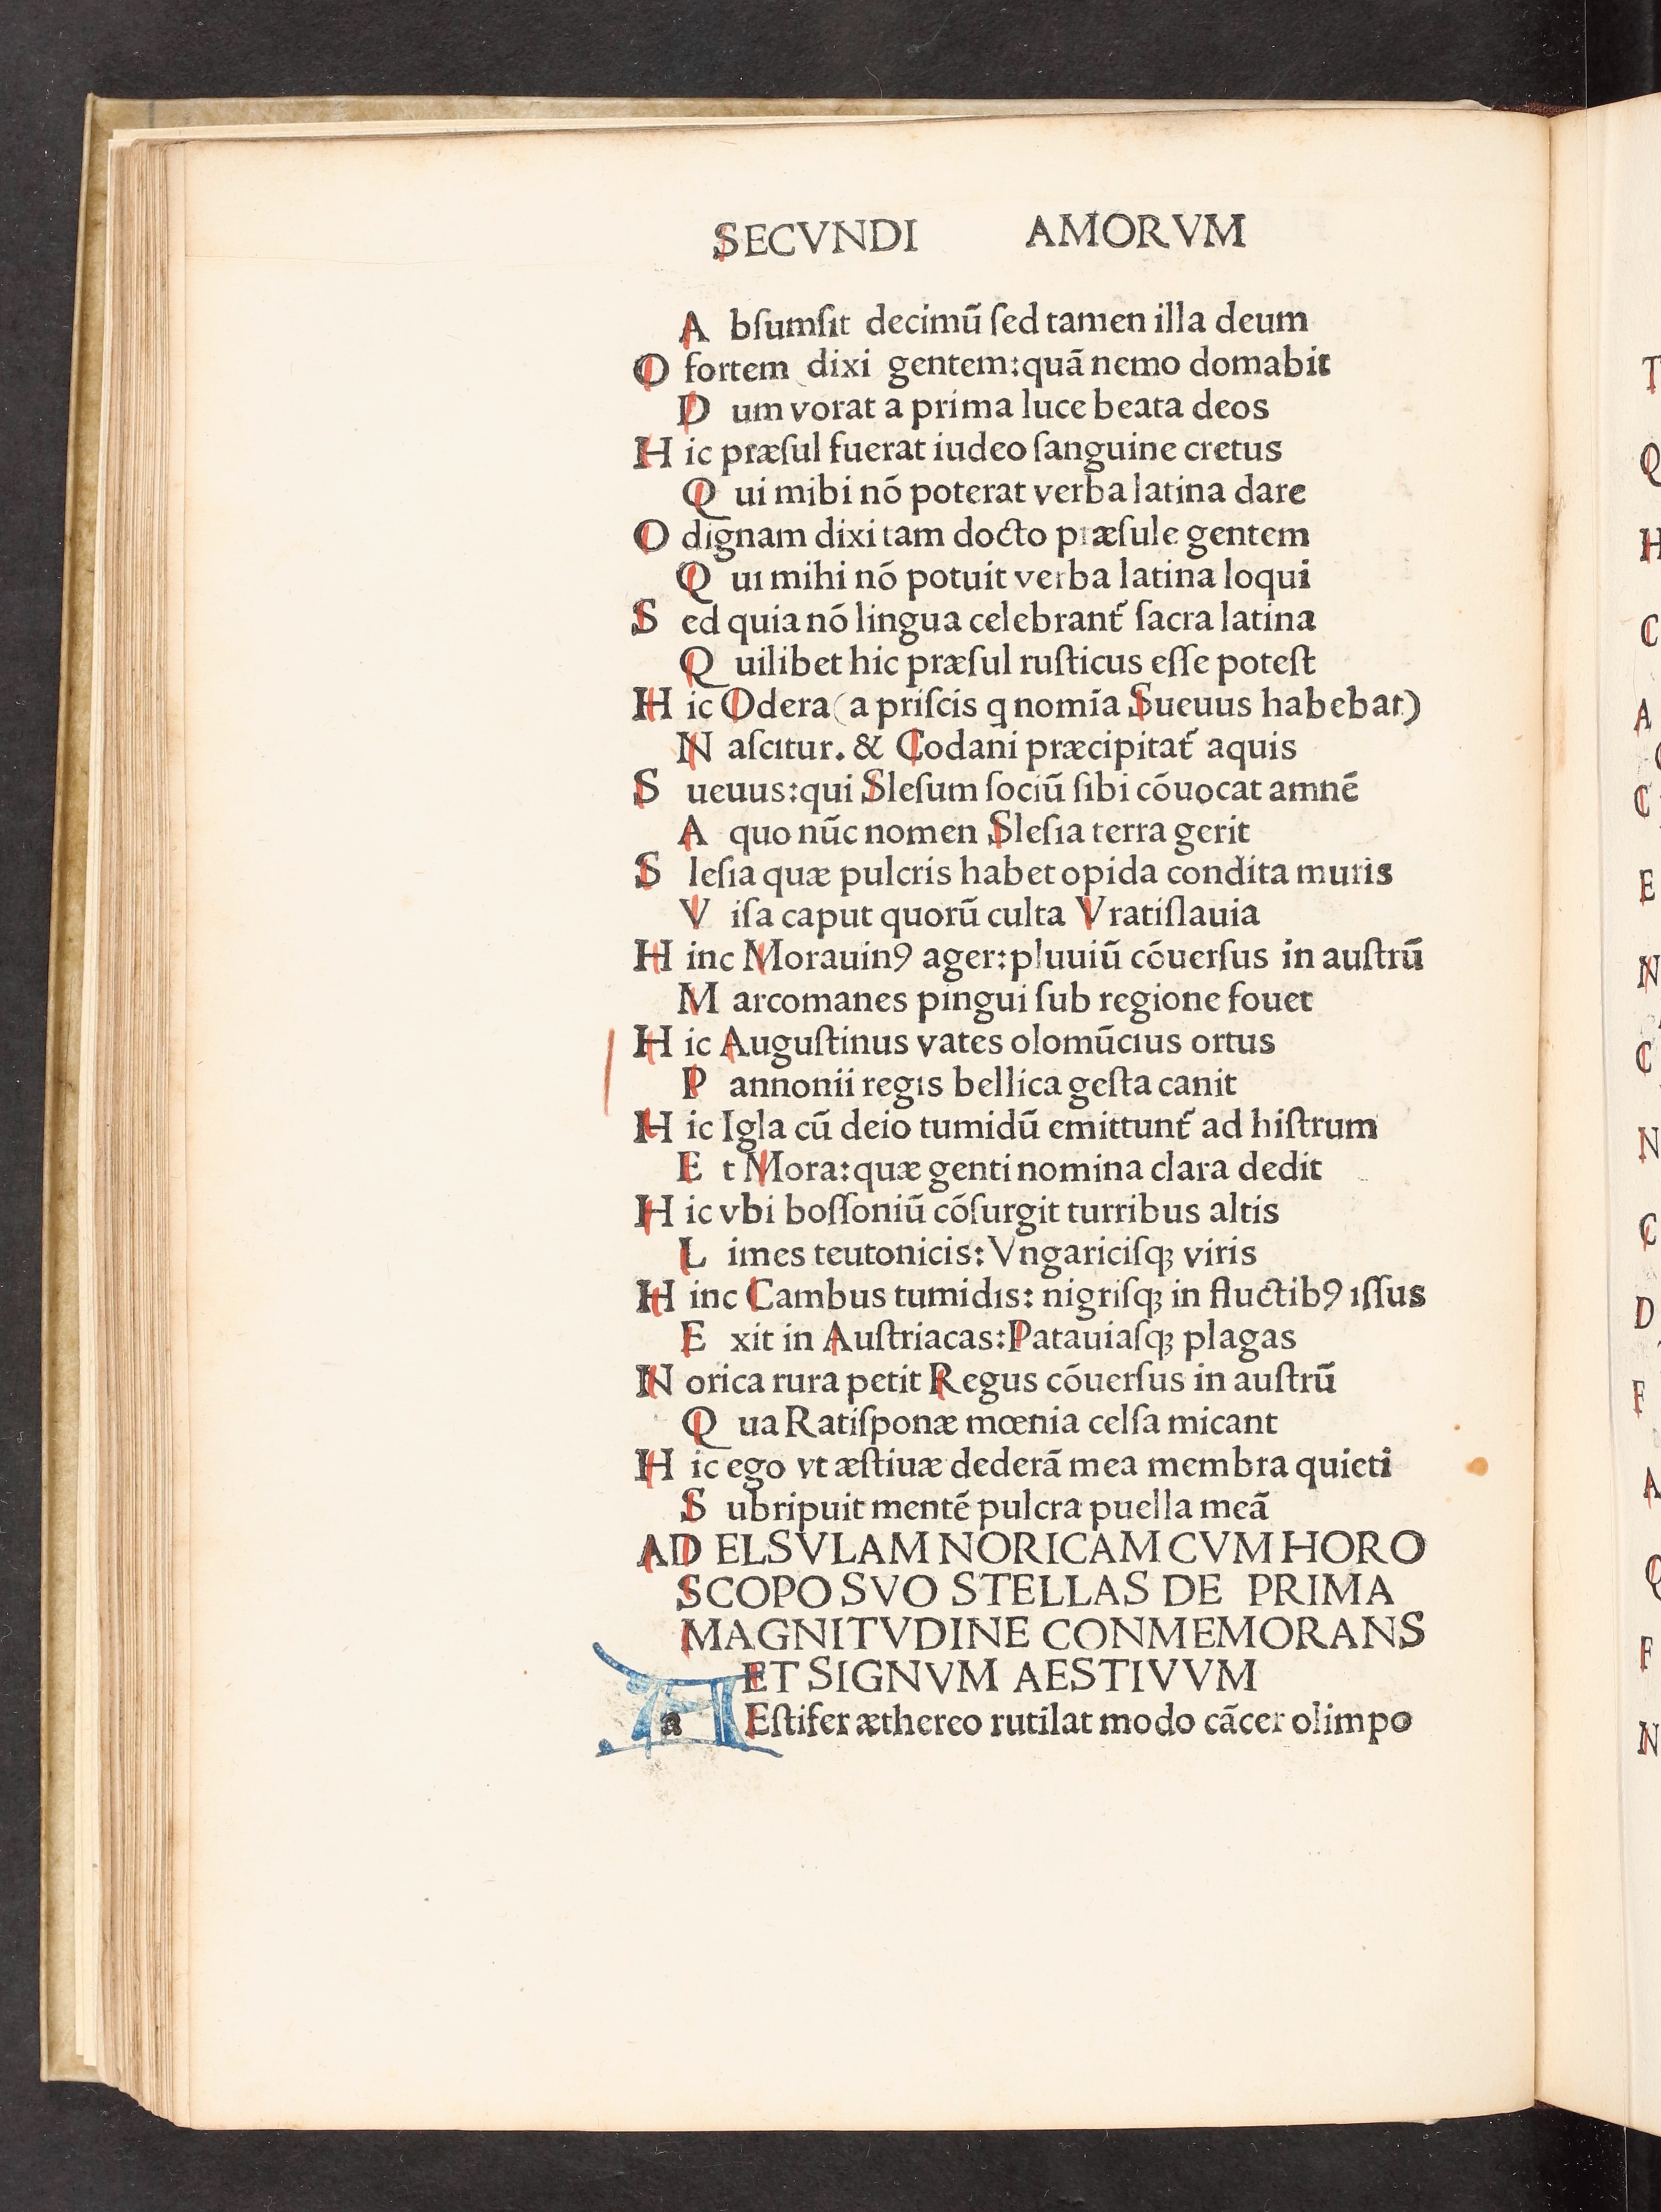 SECVNDI AMORVM
A bſumſit decimū ſed tamen illa deum
O fortem dixi gentem:quā nemo domabit
D um vorat a prima luce beata deos
H ic præſul fuerat iudeo ſanguine cretus
Q ui mibi nō poterat verba latina dare
O dignam dixi tam docto præſule gentem
Q ui mihi nō potuit verba latina loqui
S ed quia nō lingua celebrant᷑ ſacra latina
Q uilibet hic præſul ruſticus eſſe poteſt
H ic Odera (a priſcis q nomīa Sueuus habebat)
N aſcitur. & Codani præcipitat᷑ aquis
S ueuus:qui Sleſum ſociū ſibi cōuocat amnē
A quo nūc nomen Sleſia terra gerit
S leſia quæ pulcris habet opida condita muris
V iſa caput quorū culta Vratiſlauia
H inc Morauinꝰ ager:pluuiū cōuerſus in auſtrū
M arcomanes pingui ſub regione fouet
H ic Auguſtinus vates olomūcius ortus
P annonii regis bellica geſta canit
H ic Igla cū deio tumidū emittunt᷑ ad hiſtrum
E t Mora:quæ genti nomina clara dedit
H ic vbi boſſoniū cōſurgit turribus altis
L imes teutonicis: Vngariciſqꝫ viris
H inc Cambus tumidis: nigriſqꝫ in fluctibꝰ iſſus
E xit in Auſtriacas:Patauiaſqꝫ plagas
N orica rura petit Regus cōuerſus in auſtrū
Q ua Ratiſponæ mœnia celſa micant
H ic ego vt æſtiuæ dederā mea membra quieti
S ubripuit mentē pulcra puella meā
AD ELSVLAM NORICAM CVM HORO
SCOPO SVO STELLAS DE PRIMA
MAGNITVDINE CONMEMORANS
ET SIGNVM AESTIVVM
a Eſtifer æthereo rutilat modo cācer olimpo
T
Q
H
C
A
C
E
N
C
N
C
D
F
A
Q
F
N